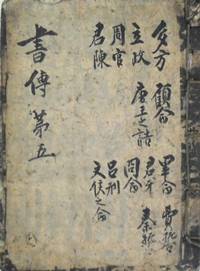 多方 顧命 畢命 費誓
立政 康王之誥 君牙 秦誓
周官 冏命
君陳 呂刑
文侯之命
書傳 苐五